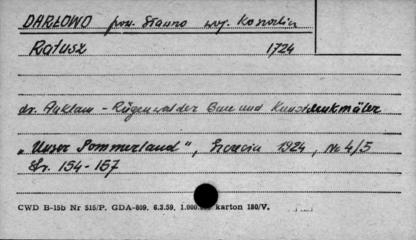 DARŁOWO pow. Sławno woj. Koszalin
Ratusz 1724
dr. Anklam - Rügenwalder Bau und Kunstdenkmäler
„Unser Pommerland", Szczecin 1924, Nr 4/5
Str. 154-157
CWD B-15b Nr 515/P. GDA-809. 6.3.59. 1.000.000 karton 180/V.